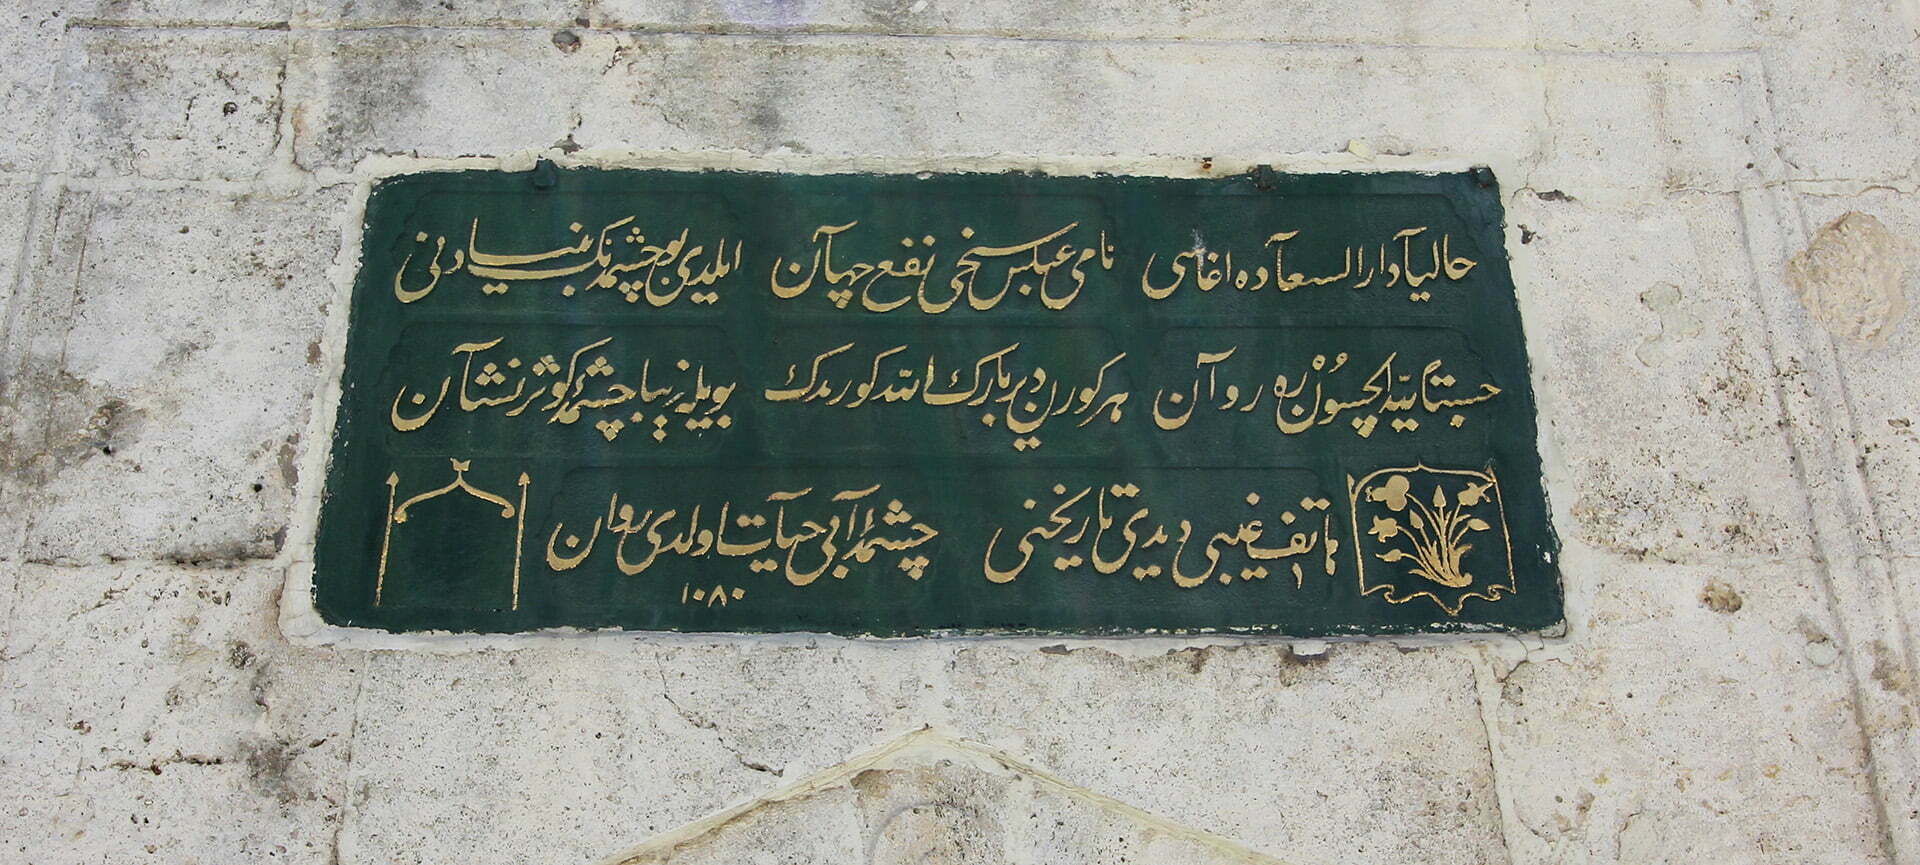 حاليا دار السعاده اغاسى نامى عباس سخى نفع جهان ايلدى بو چشمه نك بنيادنى
حسبة لله ايچون ره روان هر كورن دير بارك الله كورمدك بويله زيبا چشمهٔ كوثر نشان
هاتف غيبى ديدى تاريخنى چشمهٔ آب حيات اولدى روان
١٠٨٠